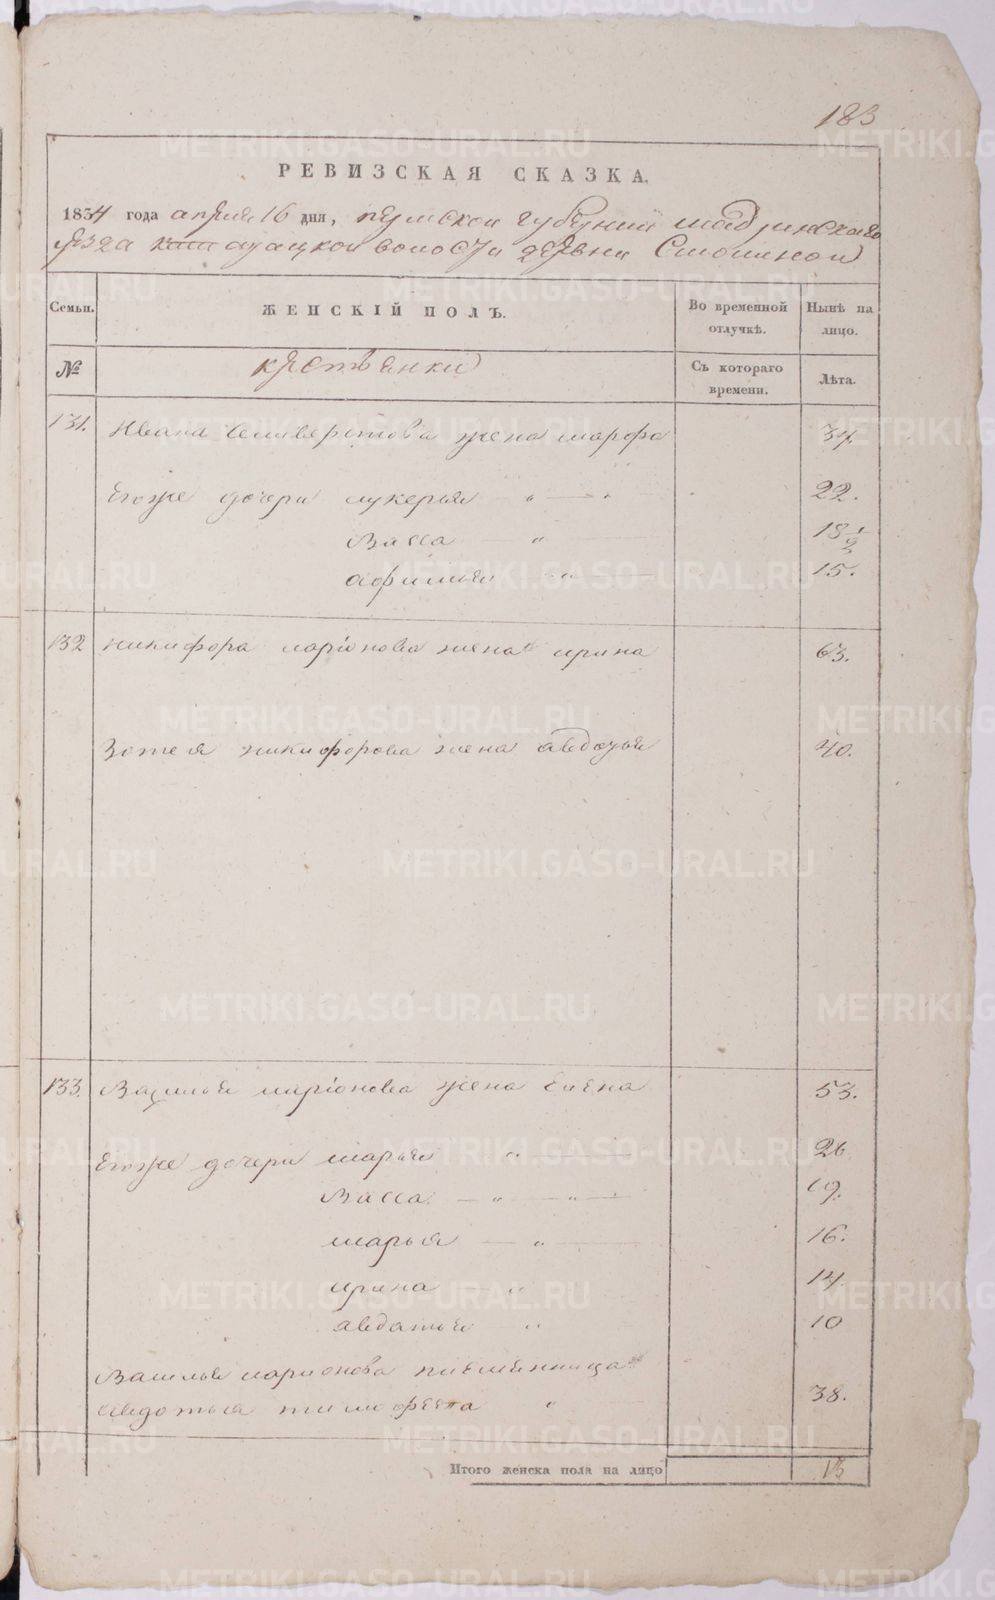 183
РЕВИЗСКАЯ СКАЗКА.
1834 года апреля 16 дня, пермской губернии шадринскаго
уезда волости деревни
Семьи. ЖЕНСКІЙ ПОЛЪ. Во временной отлучкѣ. Нынѣ на лицо.
№ крестьянки Съ котораго времени. Лѣта.
131. Ивана Селиверстова жена марфа 34
Егоже дочери лукерья " " 22.
Васса " 18 1/2
афимья " 15.
132 никифора ларіонова жена ирина 63.
Зотея никифорова жена авдотья 40.
133. Василья ларіонова жена Елена 53.
Егоже дочери марья " 26
Васса " " 19.
марья " 16.
ирина " 14.
авдотья " 10
Василья ларионова племянница
авдотья тимофеева " 38.
Итого женска пола на лицо 13
METRIKI.GASO-URAL.RU